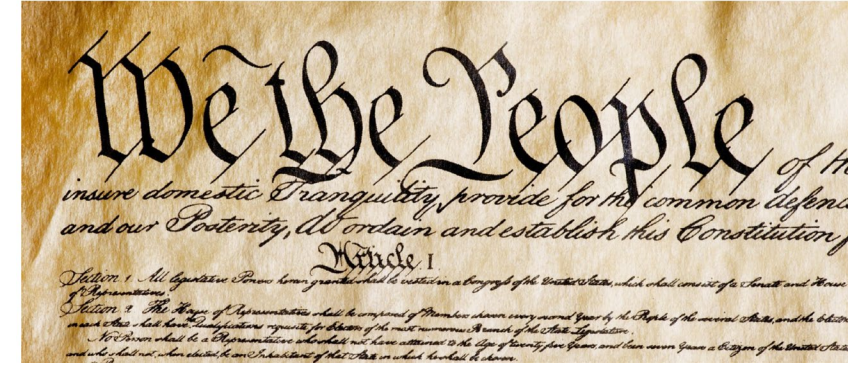 We the People of the
insure domestic Tranquility, provide for the common defence
and our Posterity, do ordain and establish this Constitution
Article. I
Section 1 All legislative Powers herein granted shall be vested in a Congress of the United States, which shall consist of a Senate and House
of Representatives.
Section 2 The House of Representatives shall be composed of Members chosen every second Year by the People of the several States, and the Electors
in each State shall have Qualifications requisite for Electors of the most numerous Branch of the State Legislature.
No Person shall be a Representative who shall not have attained to the Age of twenty five Years, and been seven Years a Citizen of the United States
and who shall not, when elected, be an Inhabitant of that State in which he shall be chosen.